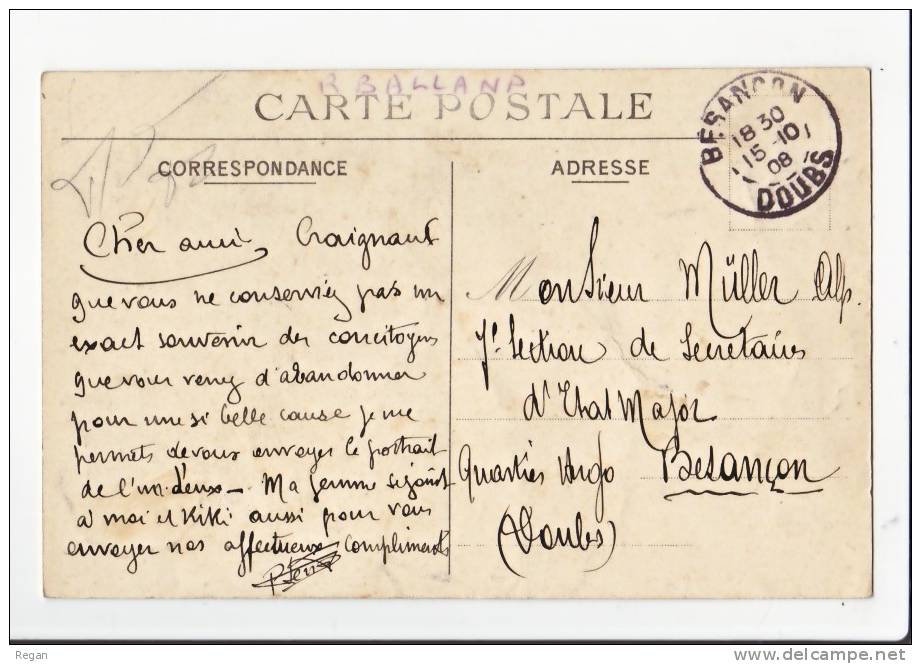 R BALLAND
CARTE POSTALE
BESANCON
18 30
15 -10
08
DOUBS
CORRESPONDANCE
Cher ami, Craignant
que vous ne conserviez pas un
exact souvenir des concitoyens
que vous venez d'abandonner
pour une si belle cause je me
permets de vous envoyer le portrait
de l'un d'eux _ Ma femme se joint
à moi et KiKi aussi pour vous
envoyer nos affectueux compliments
ADRESSE
Monsieur Müller Alp.
7e Section de Secretaires
d'Etat Major
Quartier Hugo Besançon
(Doubs)
Regan
delcampe.net